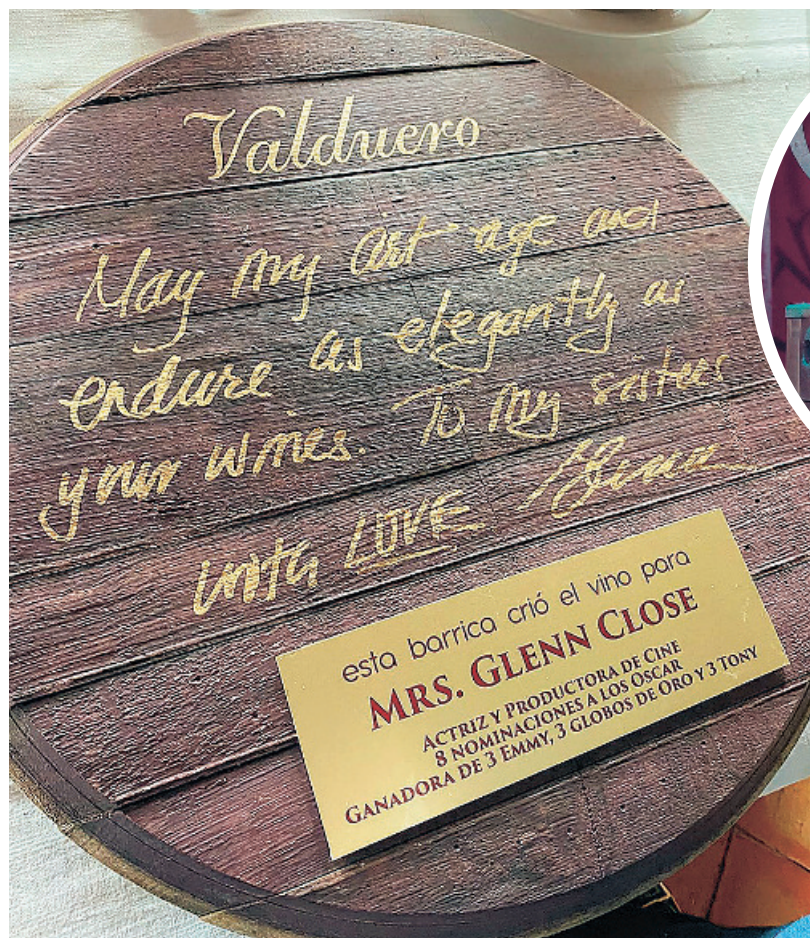 Valduero
May my art age and
endure as elegantly as
your wines. To my sisters
with LOVE Glenn
esta barrica crió el vino para
MRS. GLENN CLOSE
ACTRIZ Y PRODUCTORA DE CINE
8 NOMINACIONES A LOS OSCAR
GANADORA DE 3 EMMY, 3 GLOBOS DE ORO Y 3 TONY